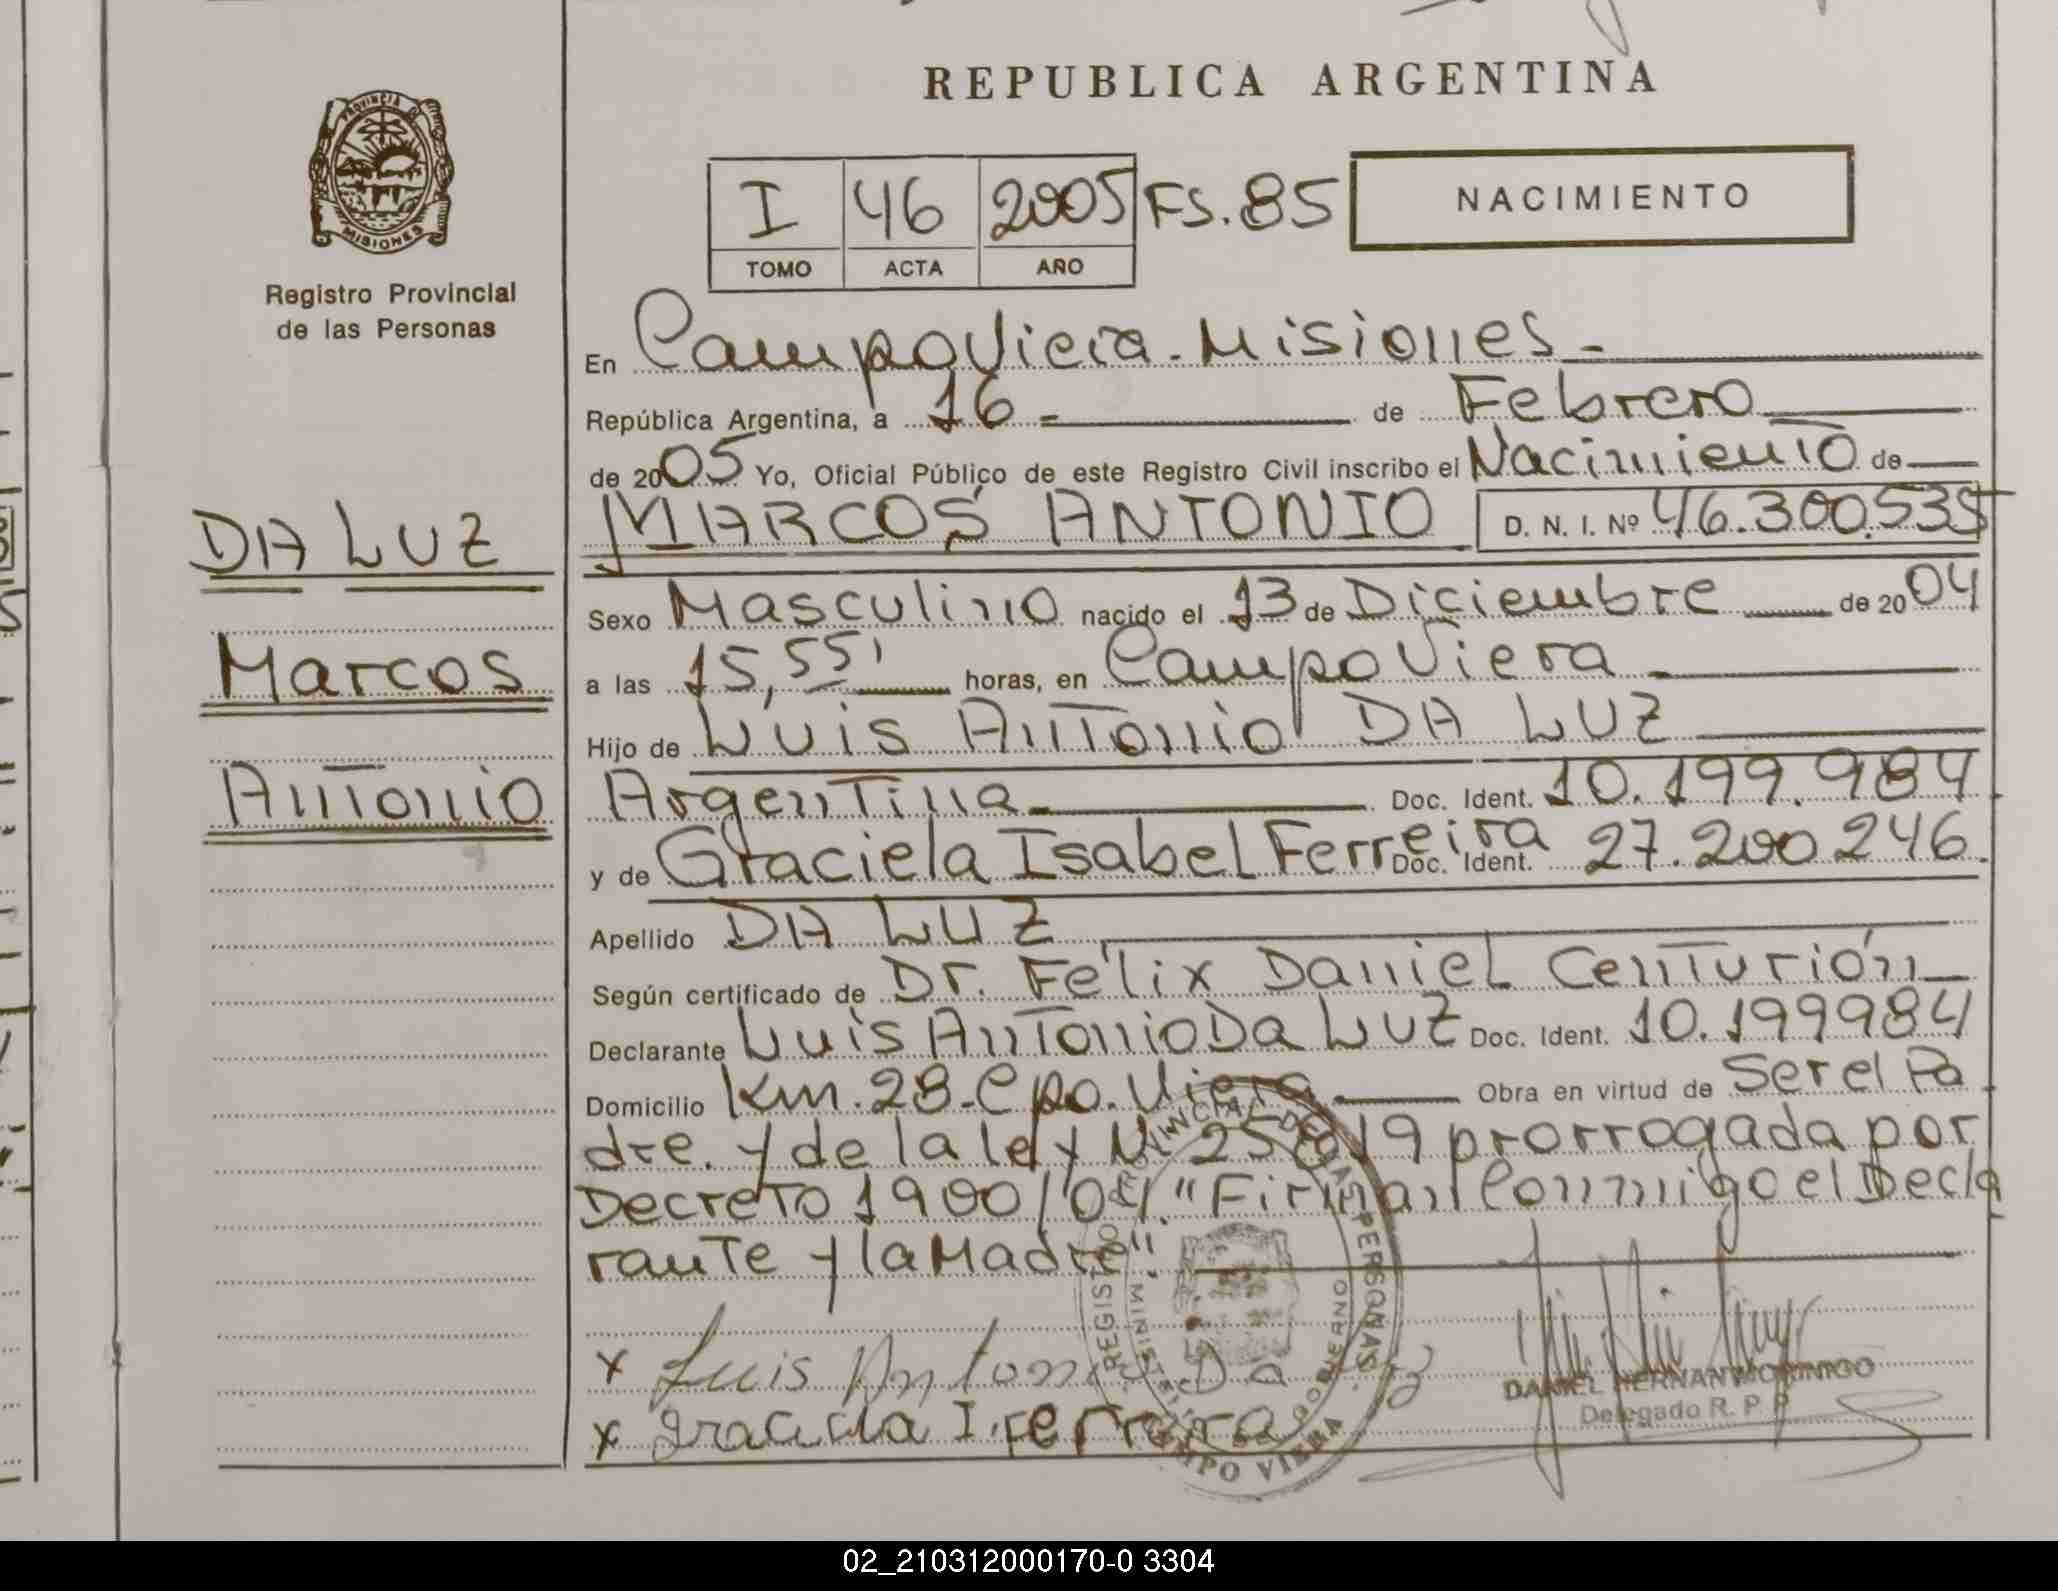 REPUBLICA ARGENTINA
PROVINCIA D
MISIONES
Registro Provincial
de las Personas
I 46 2005 FS. 85
TOMO ACTA AÑO
NACIMIENTO
En Campo Viera - Misiones -
República Argentina, a 16 - de Febrero
de 2005 Yo, Oficial Público de este Registro Civil inscribo el Nacimiento de
MARCOS ANTONIO D. N. I. Nº 46.300.535
DA LUZ
Marcos
Antonio
Sexo Masculino nacido el 13 de Diciembre de 2004
a las 15,55' horas, en Campo Viera
Hijo de Luis Antonio DA LUZ
Argentina Doc. Ident. 10.199.984
y de Graciela Isabel Ferreira Doc. Ident. 27.200.246.
Apellido DA LUZ
Según certificado de Dr. Félix Daniel Centurión
Declarante Luis Antonio Da LUZ Doc. Ident. 10.199984
Domicilio Km. 28 - Cpo. Viera Obra en virtud de Ser el Pa
dre. y de la ley N. 25 819 prorrogada por
Decreto 1900/04. "Firman Conmigo el Decla
rante y la Madre".
x Luis Antonio Da
x Graciela I. Ferreira
REGISTRO PROVINCIAL DE LAS PERSONAS
GOBIERNO
CAMPO VIERA
DANIEL HERNAN MORINIGO
Delegado R. P. P.
02_210312000170-0 3304